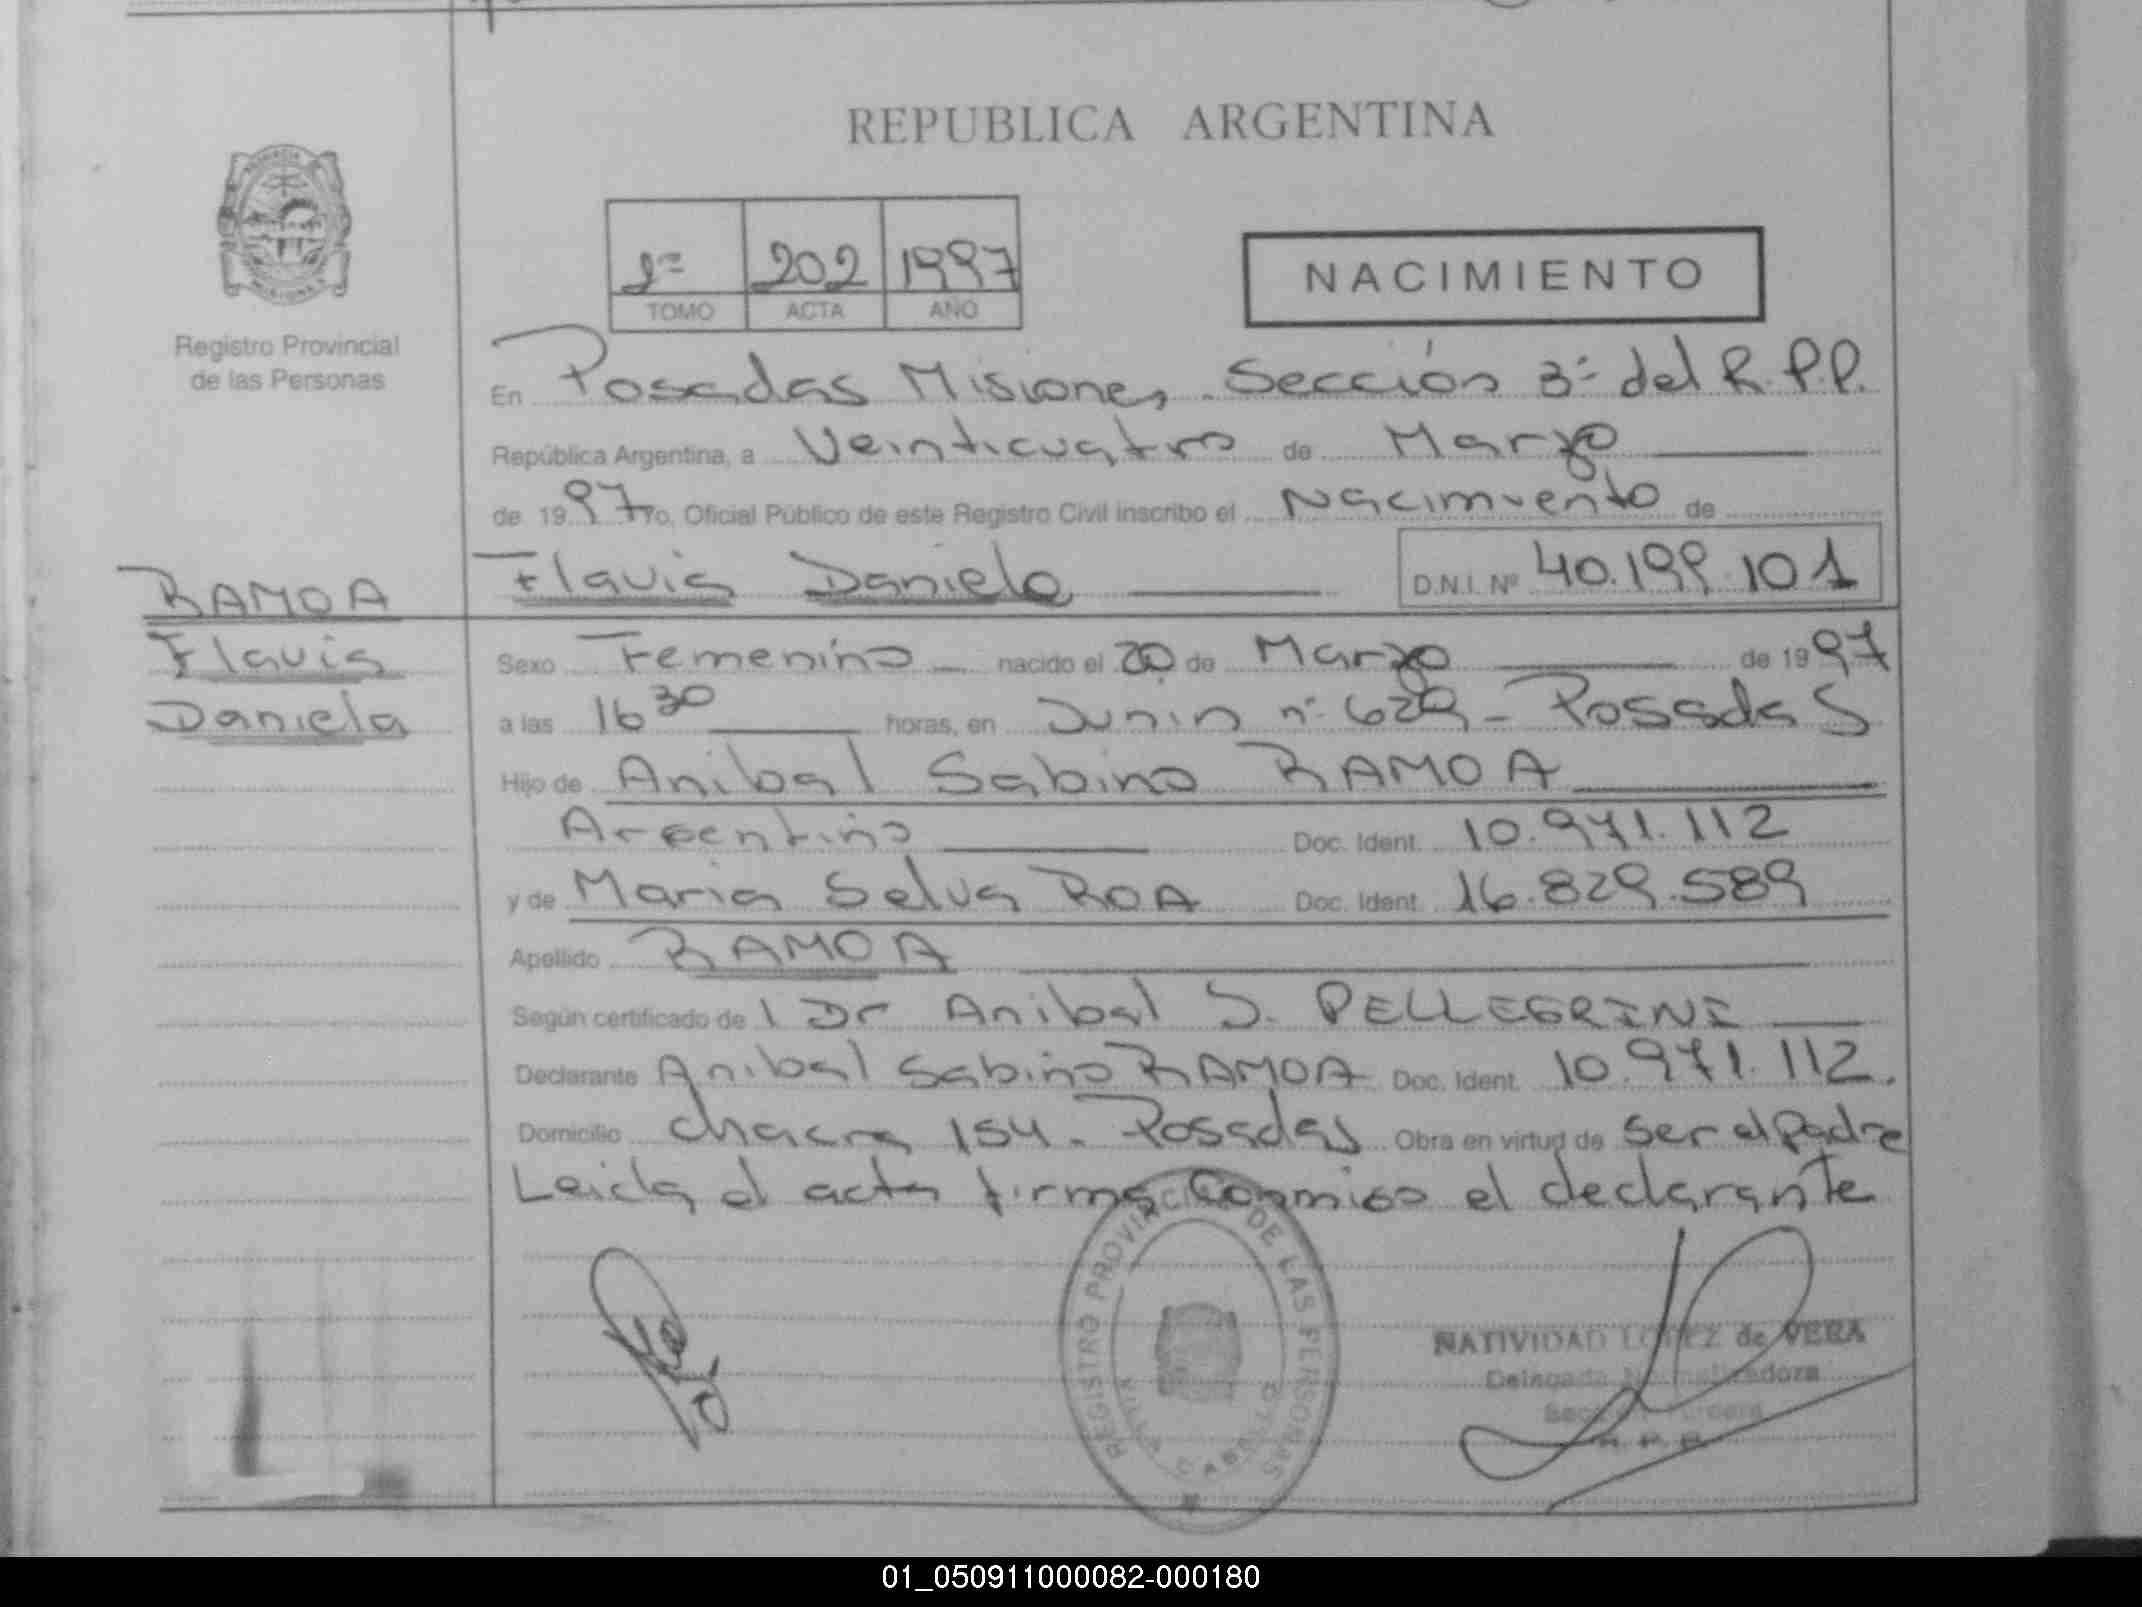 REPUBLICA ARGENTINA
Registro Provincial
de las Personas
1º 202 1997
TOMO ACTA AÑO
NACIMIENTO
En Posadas Misiones. Sección 3º del R.P.P.
República Argentina, a Veinticuatro de Marzo
de 1997 Yo, Oficial Público de este Registro Civil inscribo el Nacimiento de
Flavia Daniela D.N.I. Nº 40.199.101
RAMOA
Flavia
Daniela
Sexo Femenino nacido el 20 de Marzo de 1997
a las 16 30 horas, en Junin nº 629 - Posadas
Hijo de Anibal Sabino RAMOA
Argentino Doc. Ident. 10.971.112
y de Maria Selva ROA Doc. Ident. 16.829.589
Apellido RAMOA
Según certificado de l Dr Anibal S. PELLEGRINI
Declarante Anibal Sabino RAMOA Doc. Ident. 10.971.112.
Domicilio chacra 154. Posadas Obra en virtud de ser el padre
Leida el acta firma Conmigo el declarante
REGISTRO PROVINCIAL DE LAS PERSONAS
NATIVIDAD LOPEZ de VERA
R.P.P.
01_050911000082-000180